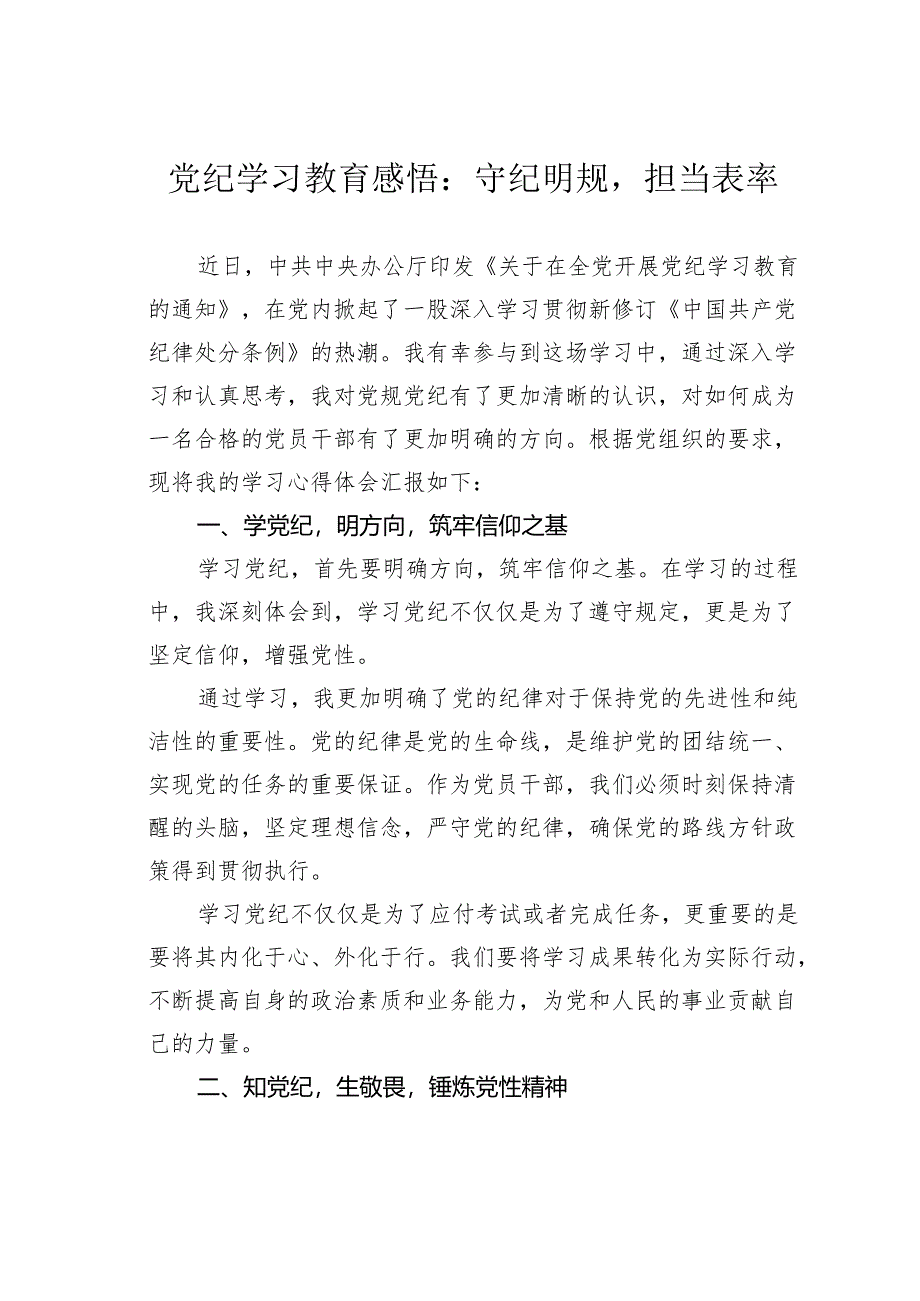 党纪学习教育感悟：守纪明规，担当表率
近日，中共中央办公厅印发《关于在全党开展党纪学习教育
的通知》，在党内掀起了一股深入学习贯彻新修订《中国共产党
纪律处分条例》的热潮。我有幸参与到这场学习中，通过深入学
习和认真思考，我对党规党纪有了更加清晰的认识，对如何成为
一名合格的党员干部有了更加明确的方向。根据党组织的要求，
现将我的学习心得体会汇报如下：
一、学党纪，明方向，筑牢信仰之基
学习党纪，首先要明确方向，筑牢信仰之基。在学习的过程
中，我深刻体会到，学习党纪不仅仅是为了遵守规定，更是为了
坚定信仰，增强党性。
通过学习，我更加明确了党的纪律对于保持党的先进性和纯
洁性的重要性。党的纪律是党的生命线，是维护党的团结统一、
实现党的任务的重要保证。作为党员干部，我们必须时刻保持清
醒的头脑，坚定理想信念，严守党的纪律，确保党的路线方针政
策得到贯彻执行。
学习党纪不仅仅是为了应付考试或者完成任务，更重要的是
要将其内化于心、外化于行。我们要将学习成果转化为实际行动，
不断提高自身的政治素质和业务能力，为党和人民的事业贡献自
己的力量。
二、知党纪，生敬畏，锤炼党性精神